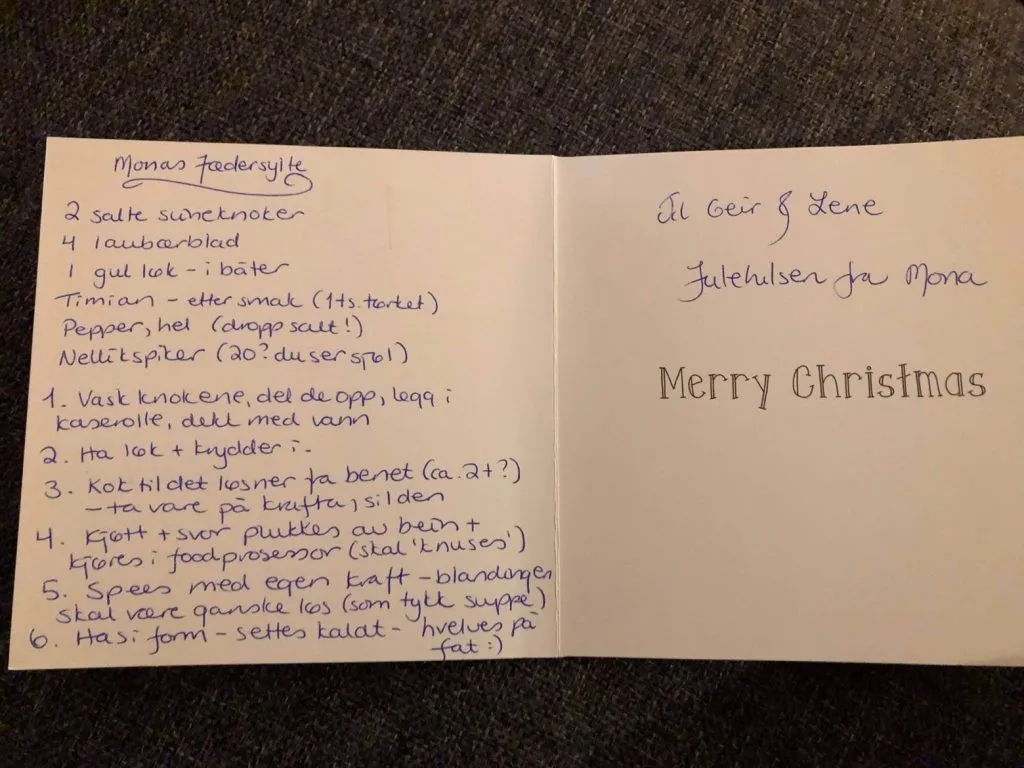 Monas Fædersylte
2 salte svineknoker
4 laubærblad
1 gul løk - i båter
Timian - etter smak (1ts. tørket)
Pepper, hel (dropp salt!)
Nellikspiker (20? du ser sjøl)
1. Vask knokene, del de opp, legg i
kaserolle, dekk med vann
2. Ha løk + krydder i.
3. Kok til det løsner fra benet (ca. 2t?)
- ta vare på krafta, sil den
4. Kjøtt + svor plukkes av bein +
kjøres i foodprosessor (skal 'knuses')
5. Spees med egen kraft - blandingen
skal være ganske løs (som tykk suppe)
6. Has i form - settes kaldt - hvelves på
fat :)
Til Geir & Lene
Julehilsen fra Mona
Merry Christmas